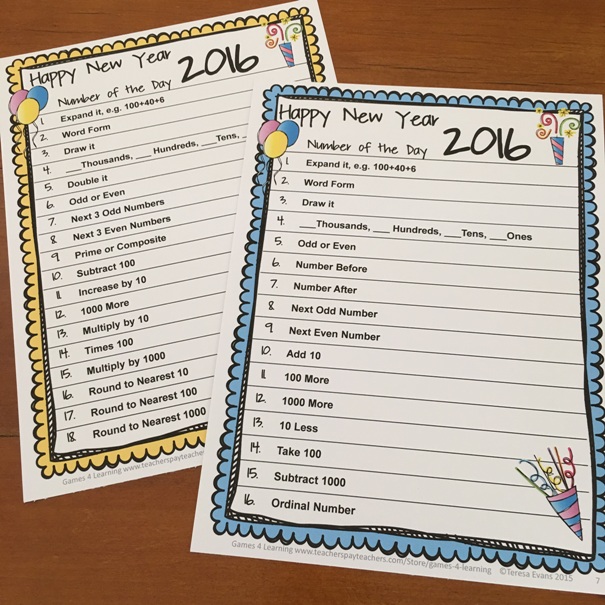 Happy New Year
2016
Number of the Day
1. Expand it, e.g. 100+40+6
2. Word Form
3. Draw it
4. ___Thousands, ___ Hundreds, ___Tens, _
5. Double it
6. Odd or Even
7. Next 3 Odd Numbers
8. Next 3 Even Numbers
9. Prime or Composite
10. Subtract 100
11. Increase by 10
12. 1000 More
13. Multiply by 10
14. Times 100
15. Multiply by 1000
16. Round to Nearest 10
17. Round to Nearest 100
18. Round to Nearest 1000
Games 4 Learning www.teacherspayteache
Happy New Year
2016
Number of the Day
1. Expand it, e.g. 100+40+6
2. Word Form
3. Draw it
4. ___Thousands, ___ Hundreds, ___Tens, ___Ones
5. Odd or Even
6. Number Before
7. Number After
8. Next Odd Number
9. Next Even Number
10. Add 10
11. 100 More
12. 1000 More
13. 10 Less
14. Take 100
15. Subtract 1000
16. Ordinal Number
Games 4 Learning www.teacherspayteachers.com/Store/games-4-learning ©Teresa Evans 2015
7